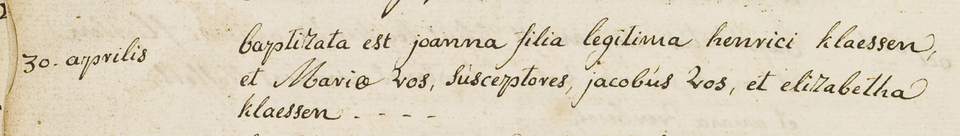 30. aprilis baptizata est joanna filia legitima henrici klaessen,
et Mariæ Vos, Susceptores, jacobus Vos, et elizabetha
klaessen - - - -